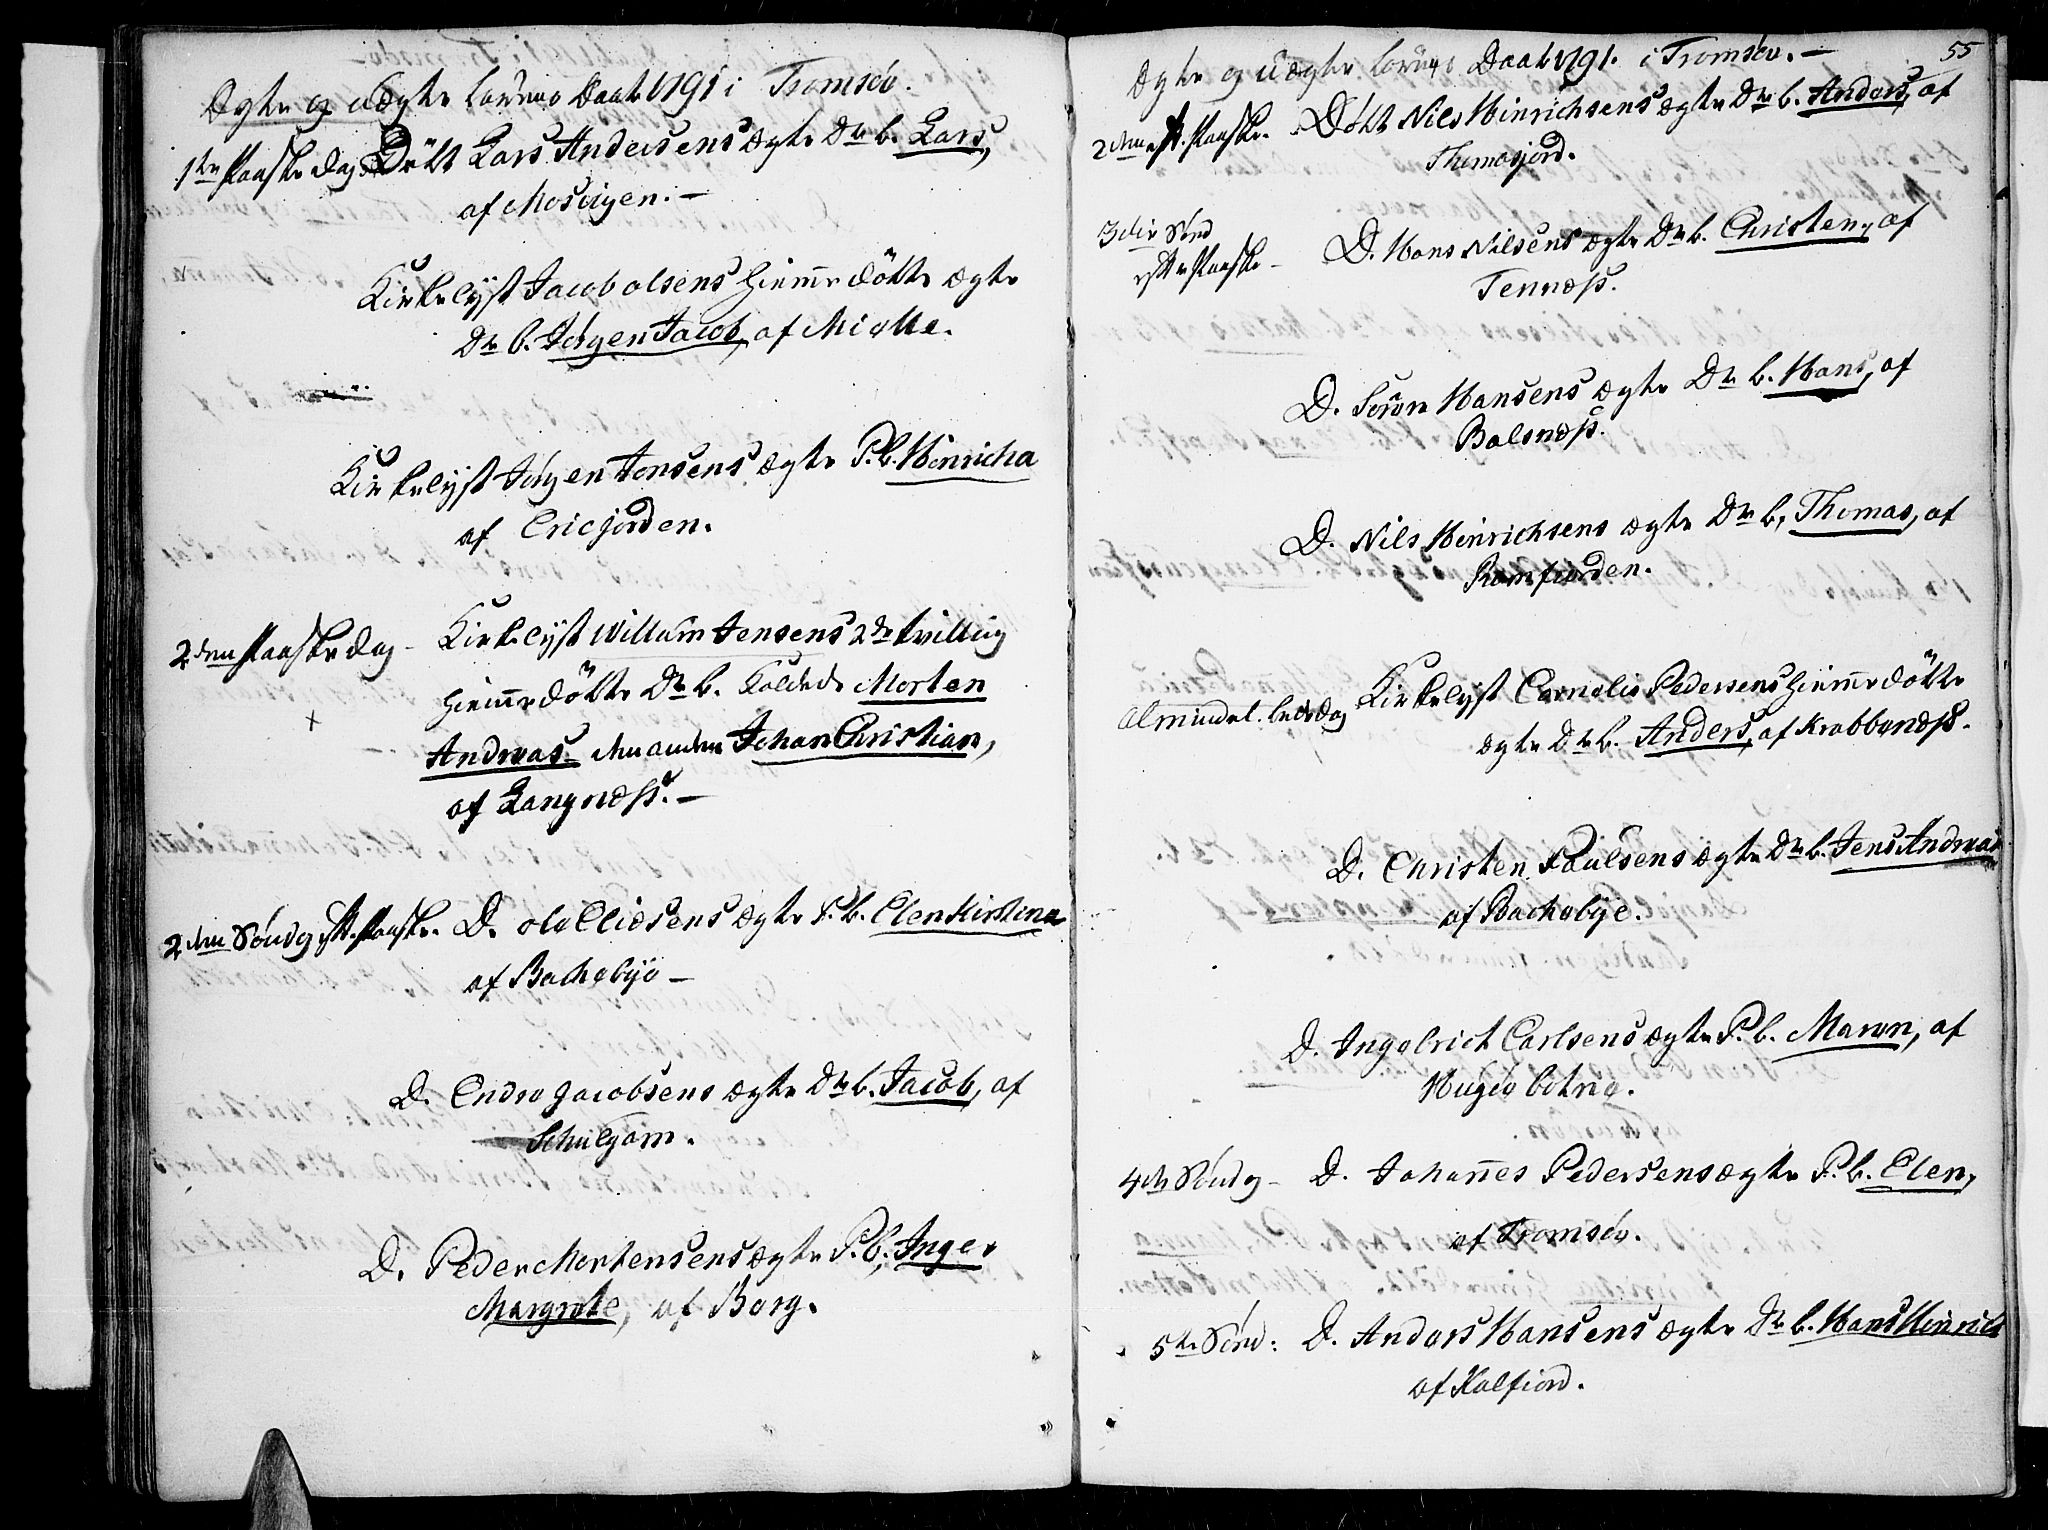 Ægte og uægte børnes Daab 1791 i Tromsöe.
1ste Paaske Dag Döbt Lars Andersens ægte Dr. b. Lars,
af Mosvigen. —
Kirkelyst Jacob olsens Hiemme döbte ægte
Dr. b. Jörgen Jacob, af Mielle.
Kirkelyst Jörgen Jonsens ægte P. b. Hinricha
af Ericjorden.
2den Paaske Dag - Kirkelyst Willum Jensens 2de tvilling
Hiemmedöbte Dr. b. Kaldede Morten
Andreas den anden Johan Christian,
af Langnæss. —
2den Söndg eft. Paaske. D. ole Eliesens ægte P. b. Elen Kirstina
af Bachebye —
D. Endre Jacobsens ægte Dr. b. Jacob, af
Schulgam.
D. Peder Mortensens ægte P. b. Inger
Margrete, af Borg.
55
Ægte og uægte børnes Daab 1791. i Tromsöe. —
2den eft. Paaske. Döbt Nils Hinrichsens ægte Dr. b. Anders, af
Thomasjord.
3die Sönd
efter Paaske - D. Hans Nilsens ægte Dr. b. Christen, af
Tennæss.
D. Sören Hansens ægte Dr. b. Hans, af
Balsnæss.
D. Nils Hinrichsens ægte Dr. b. Thomas, af
Ramfiorden.
Almindel. bededag Kirkelyst Cornelis Pedersens Hiemmedöbte
ægte Dr. b. Anders, af Krabbenæss.
D. Christen Paulsens ægte Dr. b. Jens Andreas
af Bachebye.
D. Ingebrict Carlsens ægte P. b. Maren, af
botne.
4de Söndg - D. Johannes Pedersens ægte P. b. Elen,
af Tromsöe.
5te Sönd: D. Anders Hansens ægte Dr. b. Hans Hinrich
af Kalfiord.